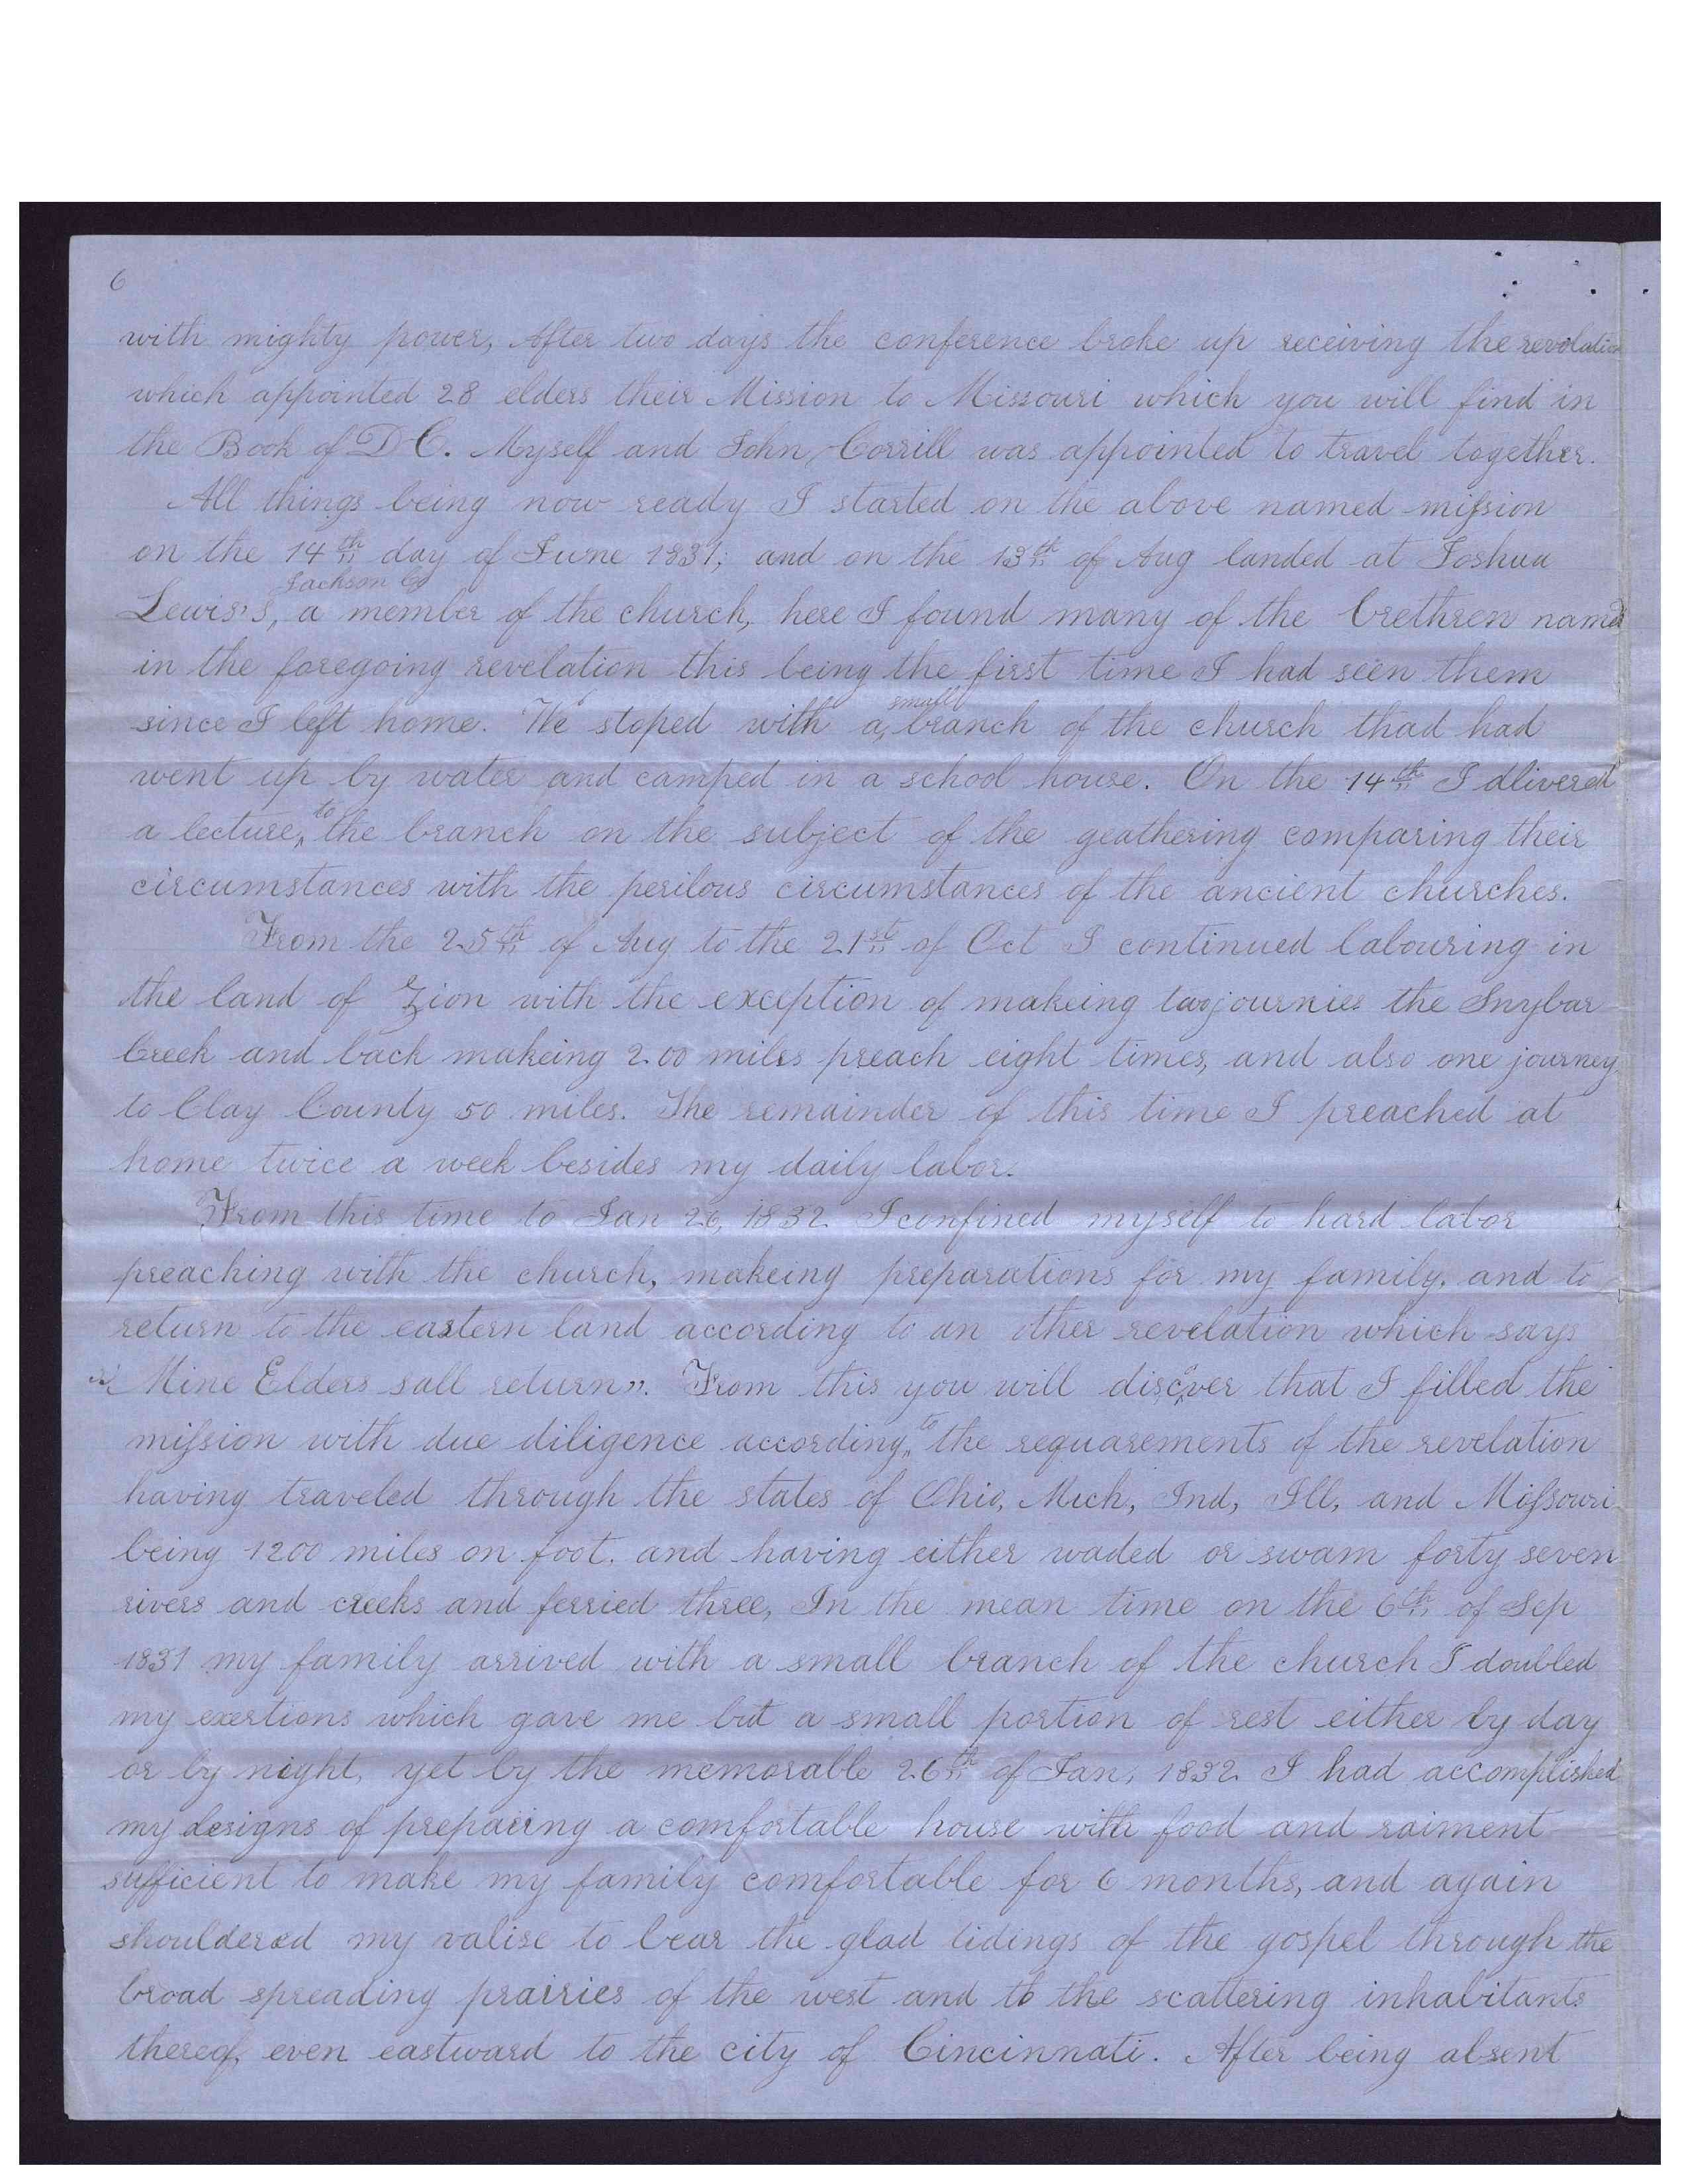 6
with mighty power, After two days the conference broke up receiving the revolation
which appointed 28 elders their Mission to Missouri which you will find in
the Book of D C. Myself and John Corrill was appointed to travel together.
All things being now ready I started on the above named mission
on the 14th day of June 1831; and on the 13th of Aug landed at Joshua
Jackson Co
Lewis's, a member of the church, here I found many of the brethren named
in the foregoing revelation this being the first time I had seen them
small
since I left home. We stoped with a branch of the church thad had
went up by water and camped in a school house. On the 14th I dlivered
a lecture, to the branch on the subject of the geathering comparing their
circumstances with the perilous circumstances of the ancient churches.
From the 25th of Aug to the 21st of Oct I continued labouring in
the land of Zion with the exception of makeing two journies the Snybar
Creek and back makeing 200 miles preach eight times, and also one journey
to Clay County 50 miles. The remainder of this time I preached at
home twice a week besides my daily labor.
From this time to Jan 26, 1832 I confined myself to hard labor
preaching with the church, makeing preparations for my family, and to
return to the eastern land according to an other revelation which says
"Mine Elders sall return". From this you will discover that I filled the
mission with due diligence according to the requarements of the revelation
having traveled through the states of Ohio, Mich, Ind, Ill, and Missouri
being 1200 miles on foot. and having either waded or swam forty seven
rivers and creeks and ferried three, In the mean time on the 6th of Sep
1831 my family arrived with a small branch of the church I doubled
my exertions which gave me but a small portion of rest either by day
or by night, yet by the memorable 26th of Jan, 1832 I had accomplished
my designs of prepairing a comfortable house with food and raiment
sufficient to make my family comfortable for 6 months, and again
shouldered my valise to bear the glad tidings of the gospel through the
broad spreading prairies of the west and to the scattering inhabitants
thereof, even eastward to the city of Cincinnati. After being absent